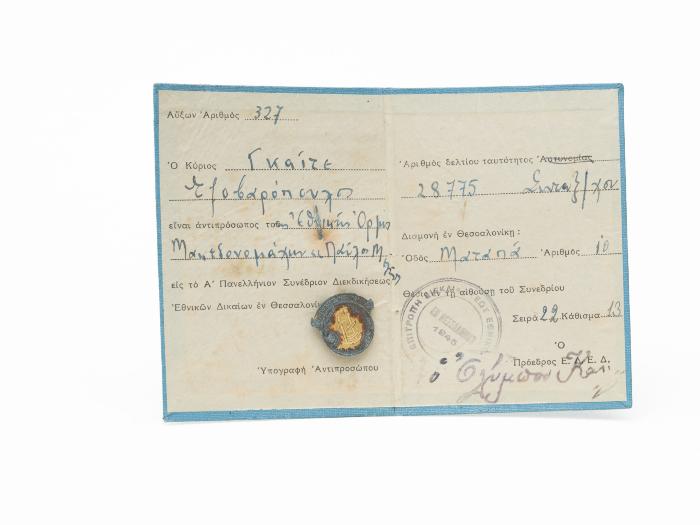 Αὔξων Ἀριθμός 327
Ὁ Κύριος Γκαίτε
εἶναι ἀντιπρόσωπος Ἐθνικῆς
Μακεδονομάχων Παῦλο
εἰς τὸ Α΄ Πανελλήνιον Συνέδριον Διεκδικήσεως
Ἐθνικῶν Δικαίων ἐν Θεσσαλονίκ
Ὑπογραφὴ Ἀντιπροσώπου
Ἀριθμὸς δελτίου ταυτότητος Ἀστυνομίας
28775
Διαμονὴ ἐν Θεσσαλονίκῃ:
Ὁδὸς Ματαπᾶ Ἀριθμὸς 10
Θέσις ἐν τῇ αἰθούσῃ τοῦ Συνεδρίου
Σειρὰ 22 Κάθισμα 13
Ὁ
Πρόεδρος Ε. Δ. Ε. Δ.
ΕΠΙΤΡΟΠΗ ΔΙΕΚΔΙΚΗΣΕΩΣ ΕΘΝΙΚΩΝ
ΕΝ ΘΕΣΣΑΛΟΝΙΚΗ
1945
ὁ